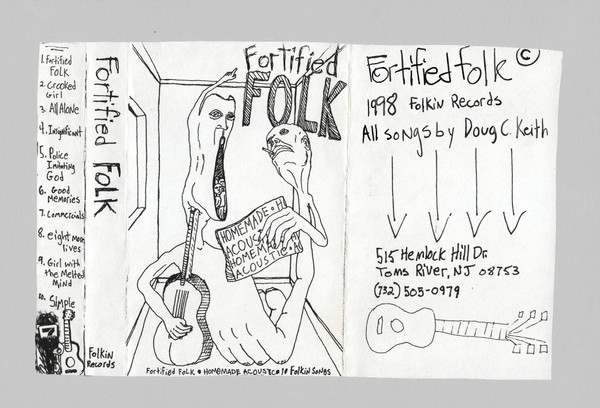 1. Fortified
FOLK
2. Crooked
Girl
3. All Alone
4. Insignificant
5. Police
Imitating
God
6. Good
Memories
7. Commercials
8. eight more
lives
9. Girl with
the Melted
Mind
10. Simple
Fortified FOLK
FolKin
Records
Fortified
FOLK
HOMEMADE • H
ACOUS
HOMEMA
ACOUSTIC
Fortified FOLK • HOMEMADE ACOUSTIC • 10 Folkin Songs
Fortified folk ©
1998 Folkin Records
All songs by Doug C. Keith
515 Hemlock Hill Dr.
Toms River, NJ 08753
(732) 505-0979